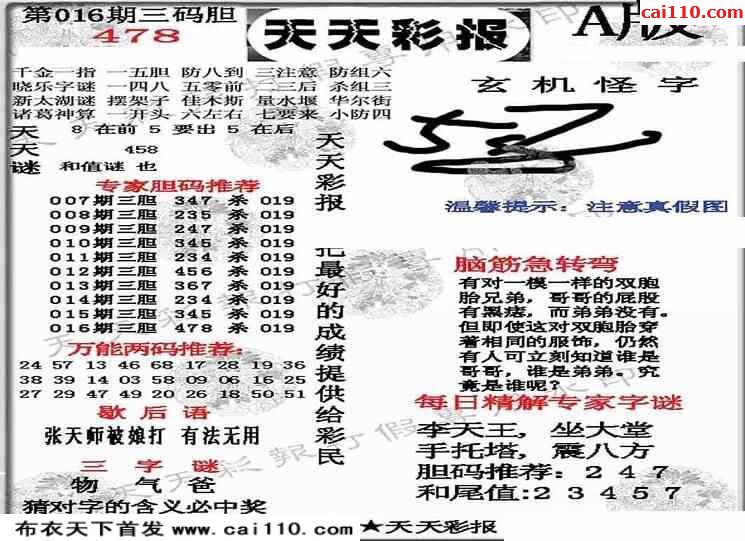 第016期三码胆
478
天天彩报
A版
cai110.com
千金一指 一五胆 防八到 三注意 防组六
晓乐字谜 一四八 五零前 二三后 杀组三
新太湖谜 摆架子 佳木斯 量水堰 华尔街
诸葛神算 一开头 六左右 七要来 小防四
天天谜
8在前5要出5在后
458
和值谜 也
专家胆码推荐
007期三胆 347 杀 019
008期三胆 235 杀 019
009期三胆 247 杀 019
010期三胆 345 杀 019
011期三胆 234 杀 019
012期三胆 456 杀 019
013期三胆 367 杀 019
014期三胆 234 杀 019
015期三胆 345 杀 019
016期三胆 478 杀 019
万能两码推荐:
24 57 13 46 68 17 28 19 36
38 39 14 03 58 09 06 16 25
27 29 47 49 20 26 18 50 51
歇后语
张天师被娘打 有法无用
三字谜
物气爸
猜对字的含义必中奖
天天彩报
汇最好的成绩提供给彩民
玄机怪字
温馨提示: 注意真假图
脑筋急转弯
有对一模一样的双胞
胎兄弟,哥哥的屁股
有黑痣,而弟弟没有。
但即使这对双胞胎穿
着相同的服饰,仍然
有人可立刻知道谁是
哥哥,谁是弟弟。究
竟是谁呢?
每日精解专家字谜
李天王,坐大堂
手托塔,震八方
胆码推荐:247
和尾值:23457
布衣天下首发 www.cai110.com ★天天彩报